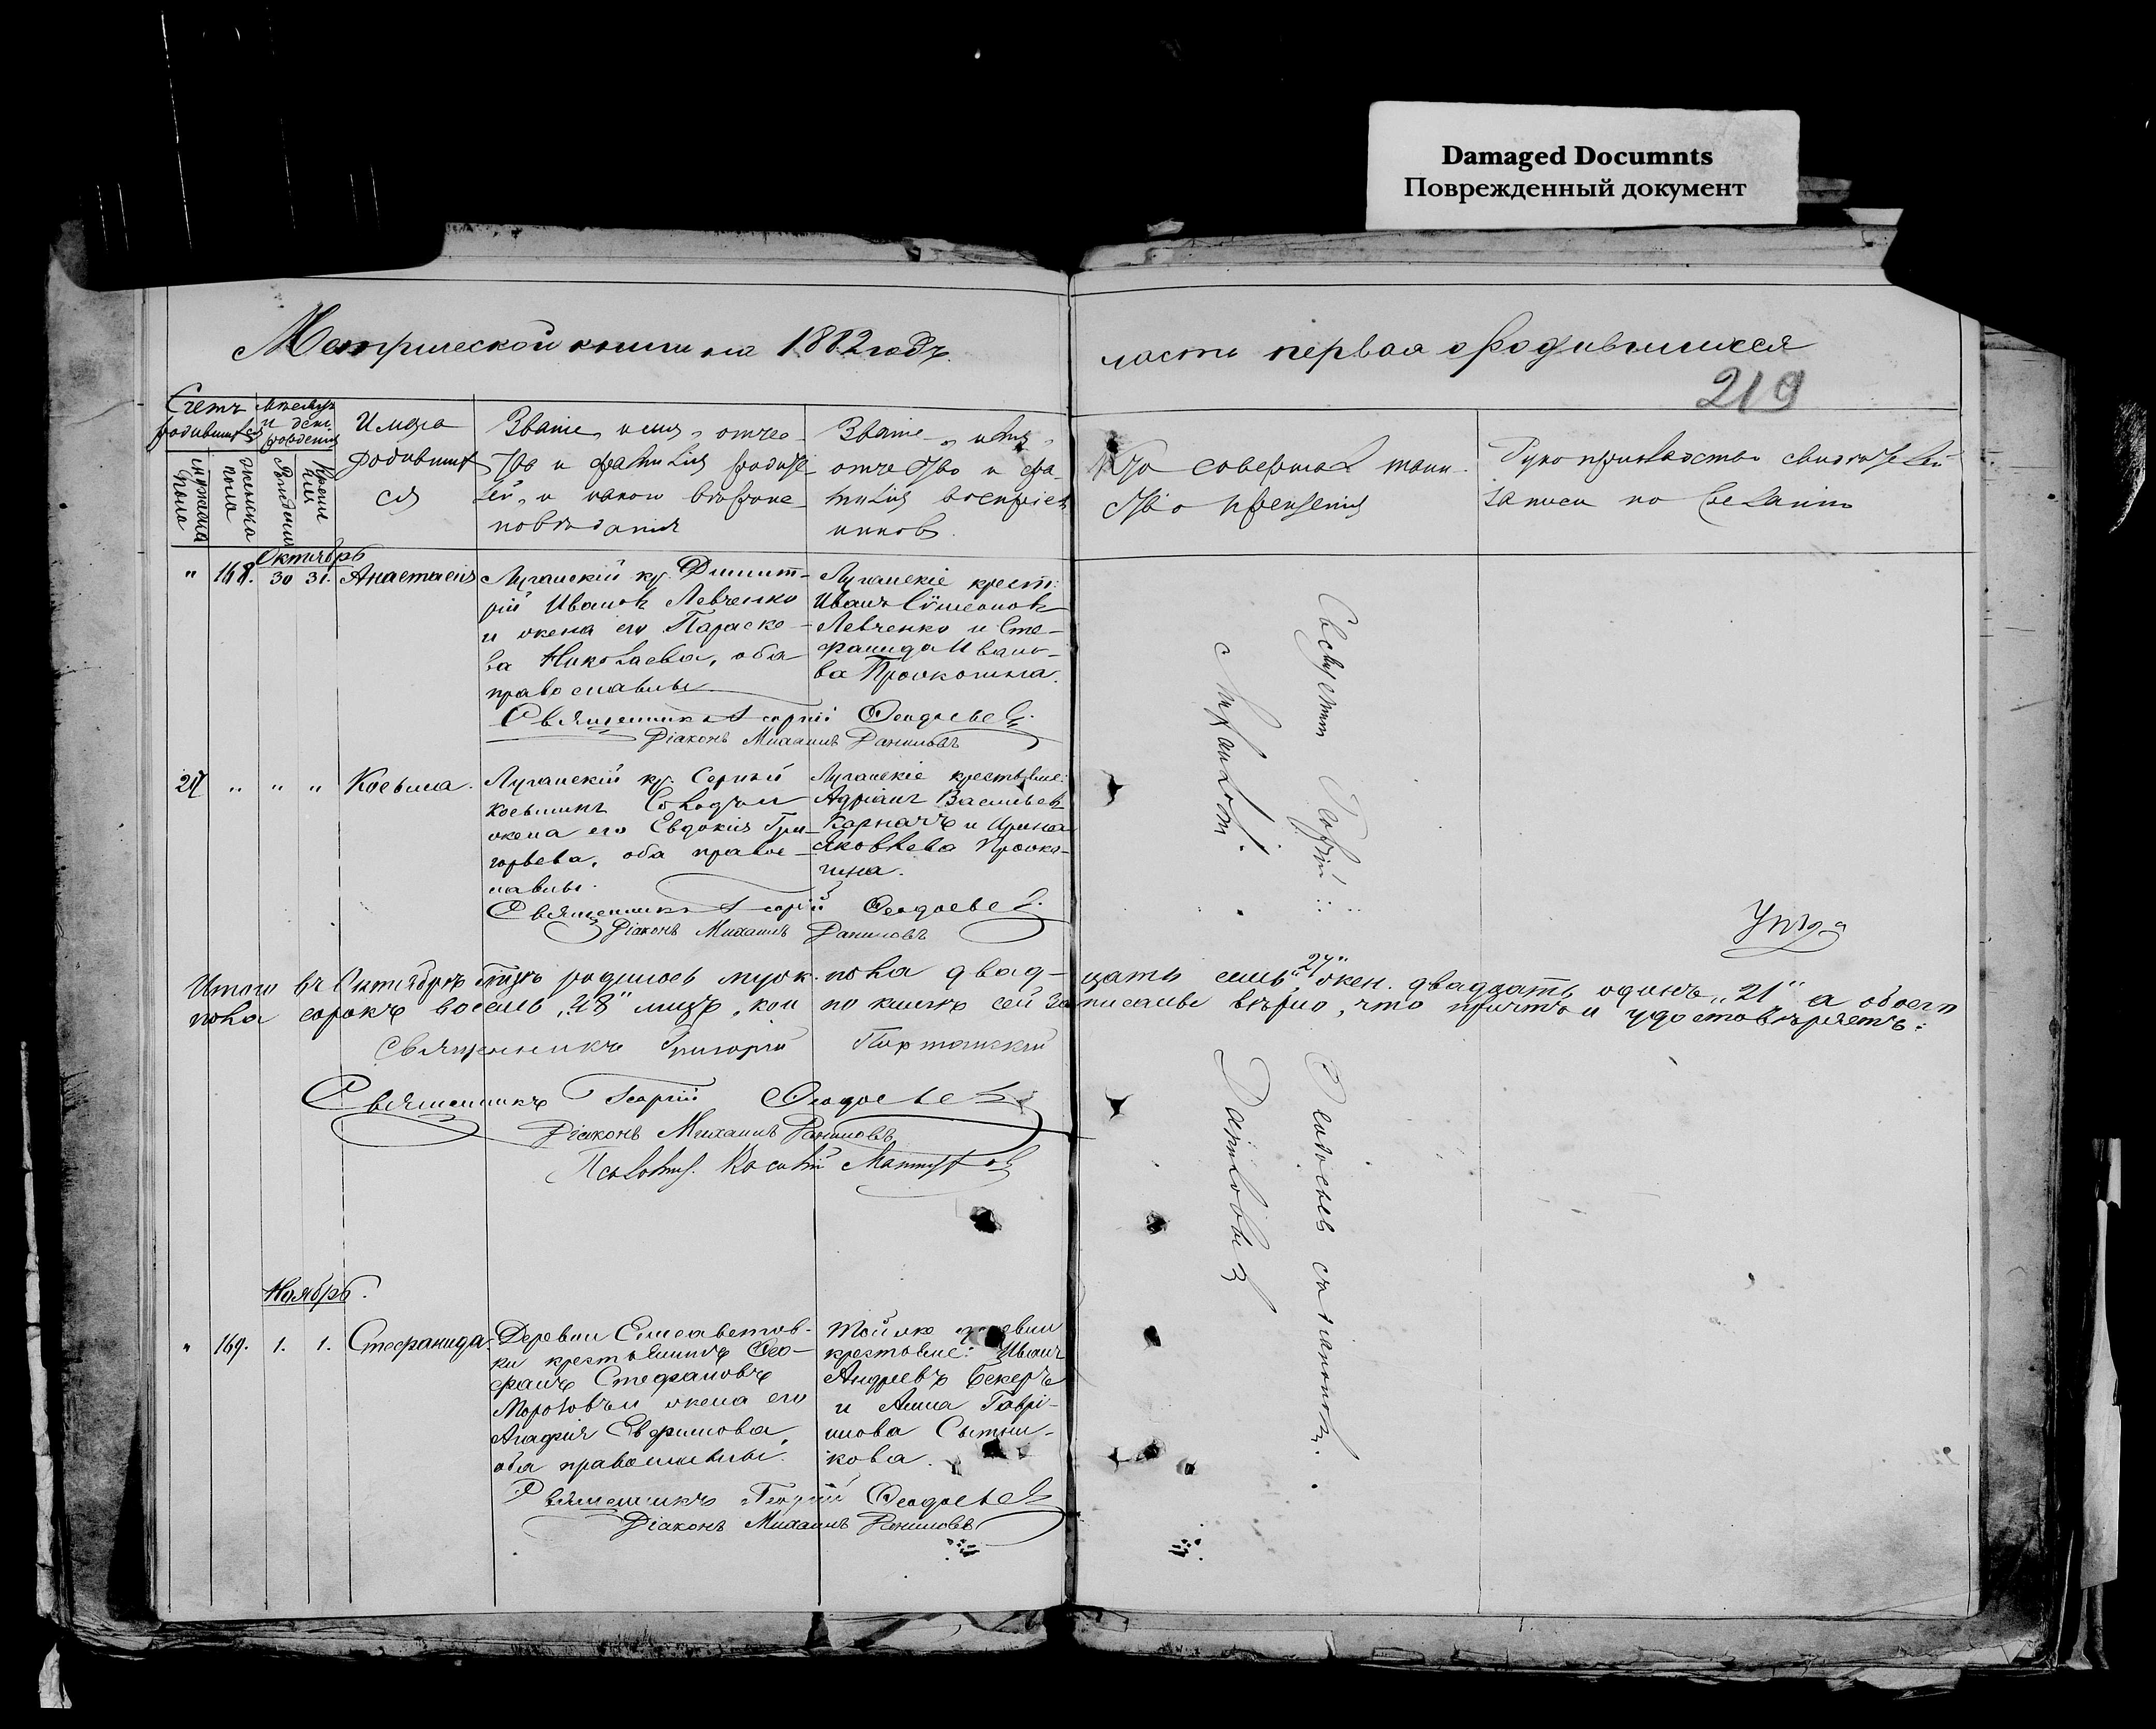 Damaged Documnts
Поврежденный документ
Метрической книги на 1882 годъ.
часть первая о родившихся
219
Счетъ родившихся
мужска пола
женска пола
Месяцъ и день рождения
Рождения
Креще ния
Имяна
родивших
ся
Званіе, имя, отчес-
тво и фамилия родите-
лей, и какого вероиспо-
поведания
Званіе, имя,
отчество и фа-
милия восприем
никовъ.
Кто совершал таин-
ство крещения
Рукоприкладство свидетелей
записи по желанию
Октябрь
" 168. 30 31. Анастасия
Луганскій кр. Димит-
рій Ивановъ Левченко
и жена его Параске-
ва Николаева, оба
православны
Луганскіе крест:
Иванъ Сѵмеоновъ
Левченко и Сте-
фанида Ивано-
ва Прочкогина.
Священникъ Георгій Федосьевъ.
Діаконъ Михаилъ Даниловъ
27 " " " Косьма.
Луганскій кр. Сергій
Косьминъ и
жена его Евдокія Гри-
горьева, оба правос-
лавны.
Луганскіе крестьяне:
Адріанъ Васильевъ
Карначъ и Ирина
Яковлева Прочко-
гина.
Священникъ Георгій Федосьевъ.
Діаконъ Михаилъ Даниловъ
Итого въ Октябрѣ родилось муж. пола двад- цать семь "27" жен. двадцать одинъ "21" а обоего
пола сорокъ восемь "48" лицъ, кои по книгѣ сей записаны вѣрно, что причтъ и удостовѣряетъ:
Священникъ Григорій
Священникъ Георгій Федосьевъ
Діаконъ Михаилъ Даниловъ
Ноябрь.
" 169. 1. 1. Стефанида.
Деревни Елисаветов-
ки крестьянинъ Фео-
фанъ Стефановъ
Морозовъ и жена его
Агафія Евфимова,
оба православны.
Той же деревни
крестьяне: Иванъ
Андреевъ Бекеръ
и Анна Гаврі-
илова Сытни-
кова.
Священникъ Георгій Федосьевъ
Діаконъ Михаилъ Даниловъ